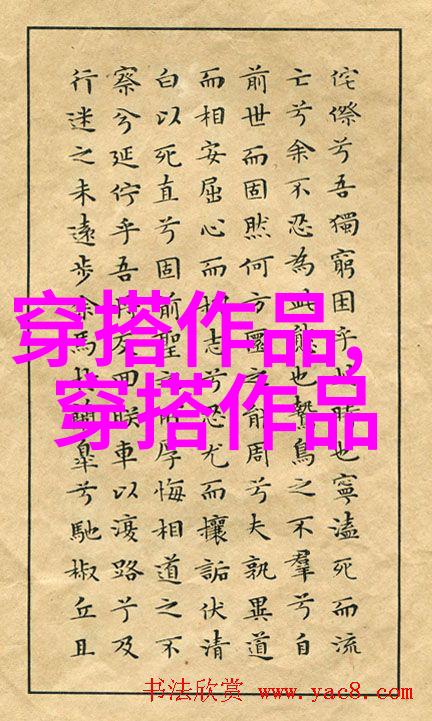 侘傺兮吾獨窮困乎此時也寧溘死而流
亡兮余不忍為此態也鷙鳥之不羣兮自
前世而固然何方圜之能周兮夫孰異道
而相安屈心而抑志兮忍尤而攘詬伏清
白以死直兮固前聖之所厚悔相道之不
察兮延佇乎吾將反回朕車以復路兮及
行迷之未遠步余馬於蘭皋兮馳椒丘且
穿搭作品,
穿搭作品
书法欣赏 www.yac8.com